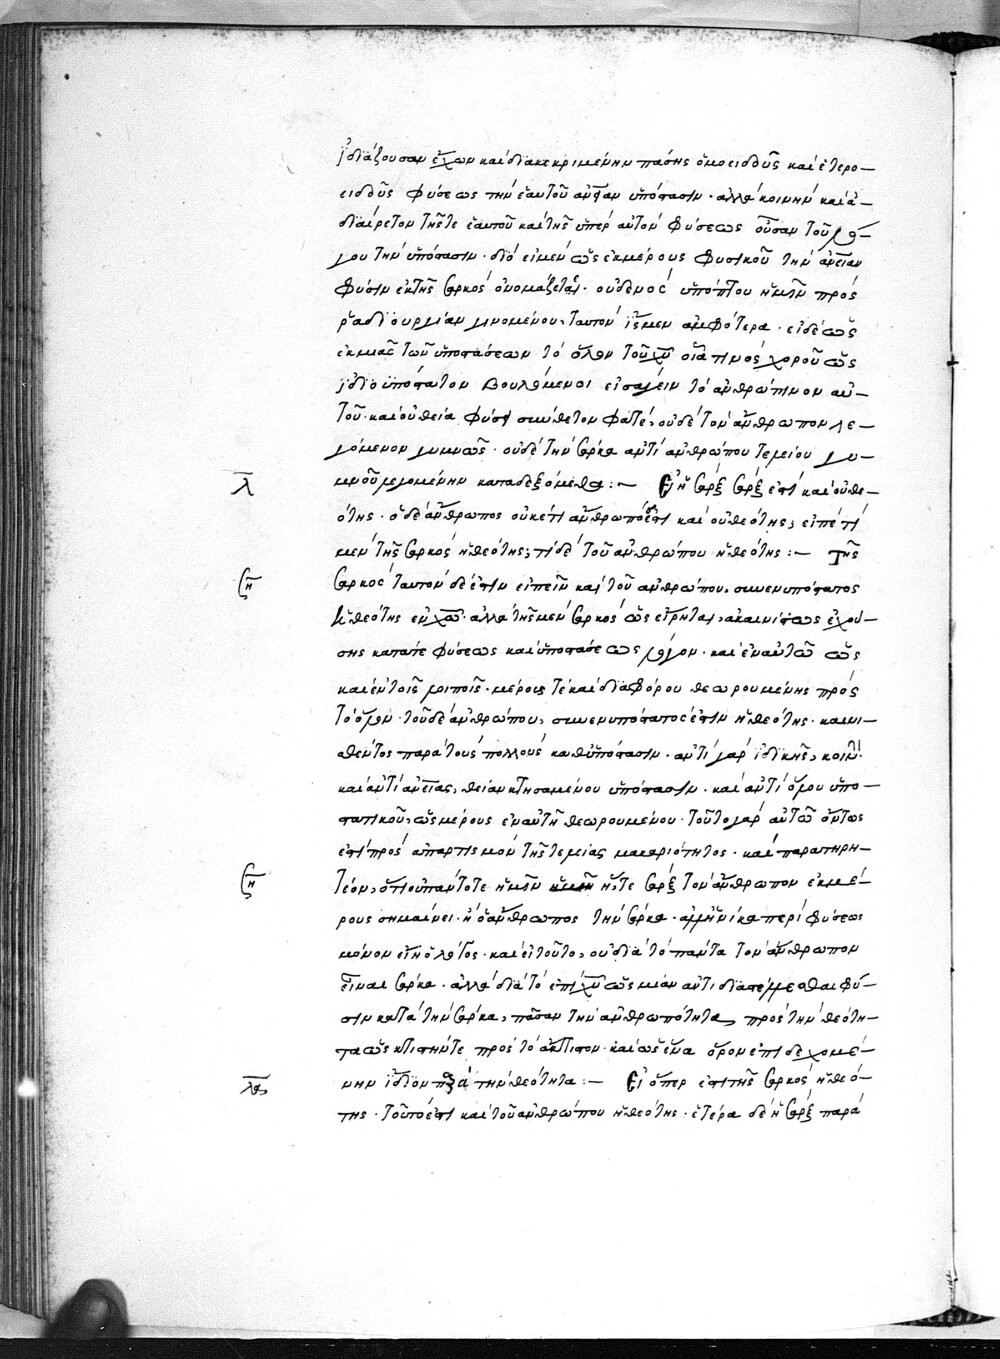 ἰδιάζουσαν ἔχων καὶ διακεκριμένην πάσης ὁμοειδοῦς καὶ ἑτερο-
ειδοῦς φύσεως τὴν ἑαυτοῦ ὑπόστασιν · ἀλλὰ κοινὴν καὶ ἀ-
διαίρετον τῆς τε ἑαυτοῦ καὶ τῆς ὑπὲρ αὐτὸν φύσεως οὖσαν τοῦ λό-
γου τὴν ὑπόστασιν · διὸ εἰ μὲν ὡς ἐκ μέρους φυσικοῦ τὴν
φύσιν ἐκ τῆς σαρκὸς ὀνομάζεται · οὐδενὸς ὑπόπτου ἡμῖν πρὸς
ῥαδιουργίαν γινομένου, ταυτὸν ἴσμεν ἀμφότερα · εἰ δὲ ὡς
ἐκ μιᾶς τῶν ὑποστάσεων τὸ ὅλον τοῦ χυ οἷά τινος χοροῦ ὡς
ἰδιοϋπόστατον βουλόμενοι εἰσάγειν τὸ ἀνθρώπινον αὐ-
τοῦ · καὶ οὐ θεία φύσει σύνθετον φατέ, οὐδὲ τὸν ἄνθρωπον λε-
γόμενον γυμνῶς · οὐδὲ τὴν σάρκα ἀντὶ ἀνθρώπου τελείου γυ-
μνοῦ λεγομένην καταδεξόμεθα :- Εἰ ἡ σὰρξ σὰρξ ἐστὶ καὶ οὐ θε-
λ
ότης · ὁ δὲ ἄνθρωπος οὐκέτι ἄνθρωπός ἐστι καὶ οὐ θεότης, εἴπέ τί
μὲν τῆς σαρκὸς ἡ θεότης, τί δὲ τοῦ ἀνθρώπου ἡ θεότης :- Τῆς
σαρκὸς ταυτὸν δέ ἐστιν εἰπεῖν καὶ τοῦ ἀνθρώπου, συνενυπόστατος
ἡ θεότης ἐν χω · ἀλλὰ τῆς μὲν σαρκὸς ὡς εἴρηται, ἀκαινίστως ἐχού-
σης κατά τε φύσεως καὶ ὑποστάσεως λόγον · καὶ ἐν αὐτῶ ὡς
καὶ ἐν τοῖς λοιποῖς · μέρους τε καὶ διαφόρου θεωρουμένης πρὸς
τὸ ὅλον · τοῦ δὲ ἀνθρώπου, συνενυπόστατός ἐστιν ἡ θεότης · καινι-
σθέντος παρὰ τοὺς πολλοὺς καθ' ὑπόστασιν · ἀντὶ γὰρ ἰδικῆς, κοινὴν
καὶ ἀντὶ θείαν κτησαμένου ὑπόστασιν · καὶ ἀντὶ ὅλου ὑπο-
στατικοῦ, ὡς μέρους ἐν αὐτῆ θεωρουμένου · τοῦτο γὰρ αὐτῶ ὄντως
ἐστὶ πρὸς ἀπαρτισμὸν τῆς τελείας μακαριότητος · καὶ παρατηρη-
τέον, ὅτι οὐ πάντοτε ἡμῖν ἥ τε σὰρξ τὸν ἄνθρωπον ἐκ μέ-
ρους σημαίνει · ἢ ὁ ἄνθρωπος τὴν σάρκα · ἀλλ' ἡνίκα περὶ φύσεως
μόνον εἴη ὁ λόγος · καὶ εἰ τοῦτο, οὐ διὰ τὸ πάντα τὸν ἄνθρωπον
εἶναι σάρκα · ἀλλὰ διὰ τὸ ἐπὶ χυ ὡς μίαν ἀντιδιαστέλλεσθαι φύ-
σιν κατὰ τὴν σάρκα, πᾶσαν τὴν ἀνθρωπότητα, πρὸς τὴν θεότη-
τα ὡς κτιστήν τε πρὸς τὸ ἄκτιστον · καὶ ὡς ἕνα ὅρον ἐπιδεχομέ-
νην ἴδιον παρὰ τὴν θεότητα :- Εἰ ὅπερ ἐστὶ τῆς σαρκὸς ἡ θεό-
της · τοῦτό ἐστι καὶ τοῦ ἀνθρώπου ἡ θεότης · ἑτέρα δὲ ἡ σὰρξ παρὰ